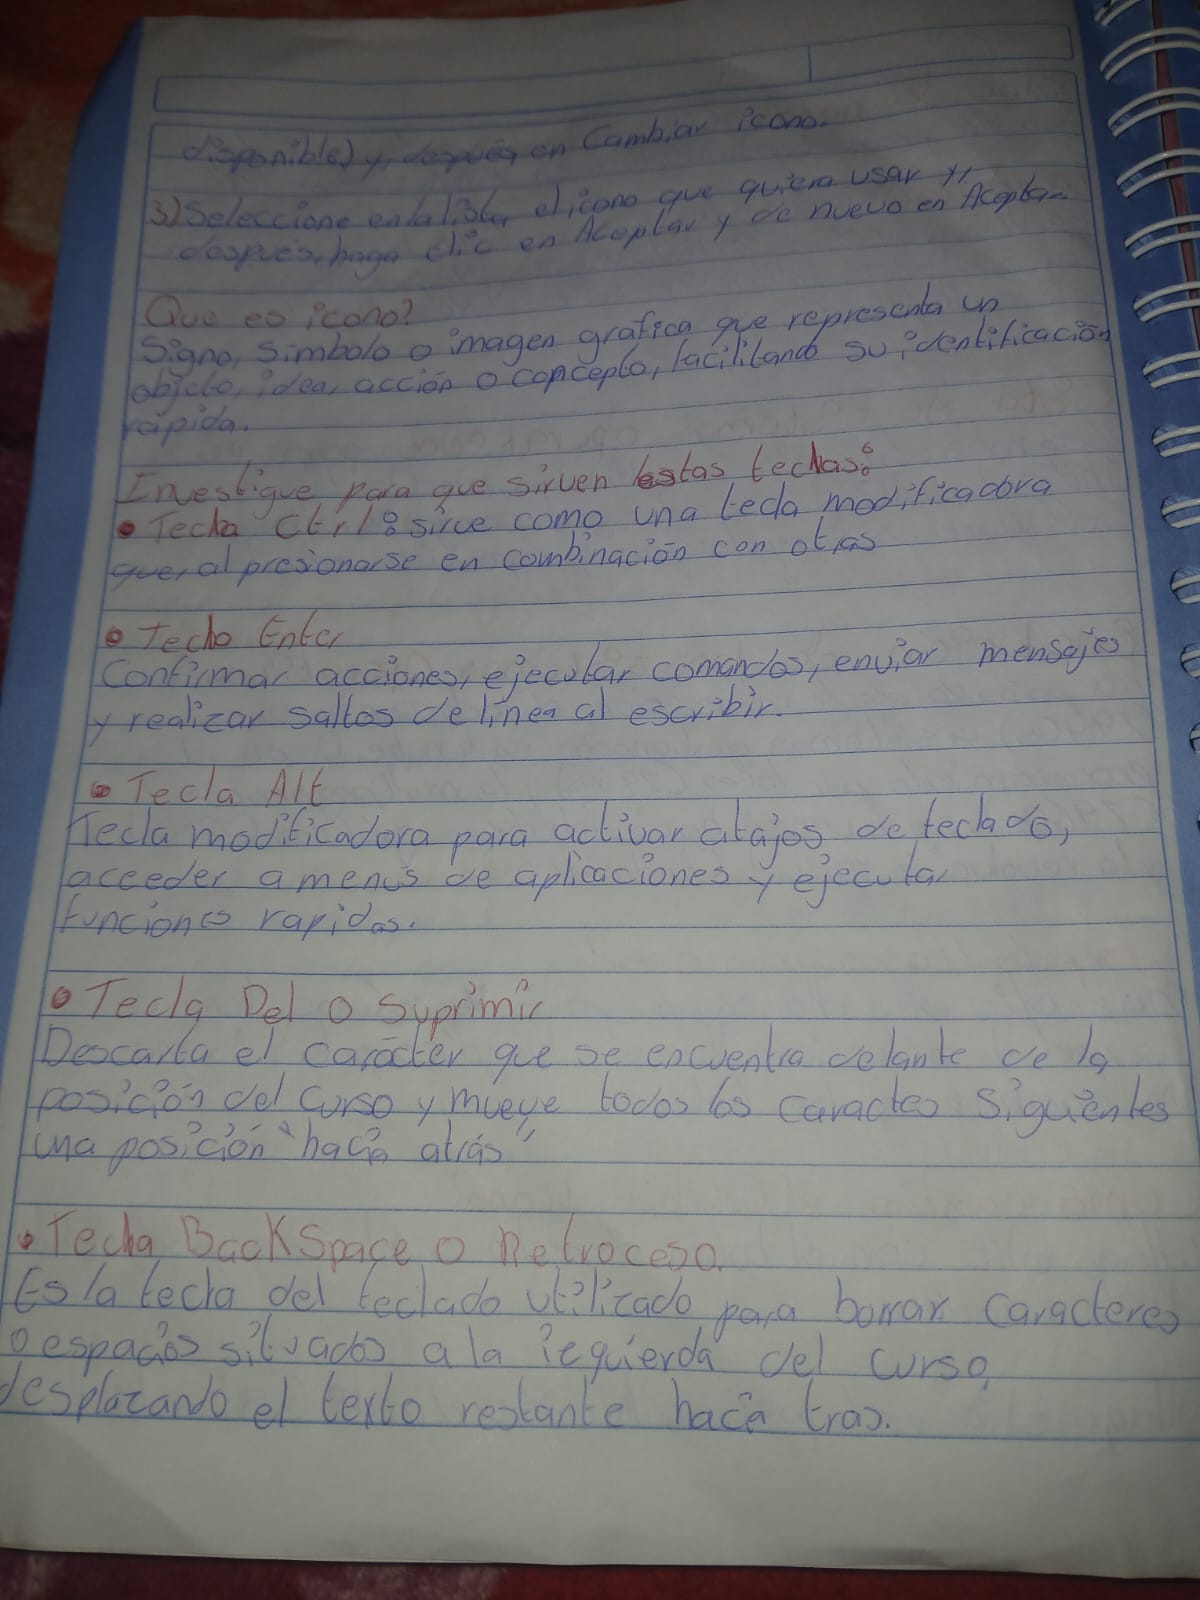 disponible) y, después en Cambiar icono.
3) Seleccione en la lista, el icono que quiera usar y,
después, haga clic en Aceptar y de nuevo en Aceptar.
Que es icono?
Signo, simbolo o imagen grafica que representa un
objeto, idea, acción o concepto, facilitando su identificación
rápida.
Investigue para que sirven estas teclas:
• Tecla Ctrl: sirve como una tecla modificadora
que, al presionarse en combinación con otras
• Tecla Enter
Confirmar acciones, ejecutar comandos, enviar mensajes
y realizar saltos de línea al escribir.
• Tecla Alt
Tecla modificadora para activar atajos de teclado,
acceder a menús de aplicaciones y ejecutar
funciones rapidas.
• Tecla Del o Suprimir
Descarta el carácter que se encuentra delante de la
posición del curso y mueve todos los caractes siguientes
una posición "hacia atrás"
• Tecla BackSpace o Retroceso.
Es la tecla del teclado utilizado para borrar caracteres
o espacios situados a la izquierda del curso,
desplazando el texto restante hacia tras.